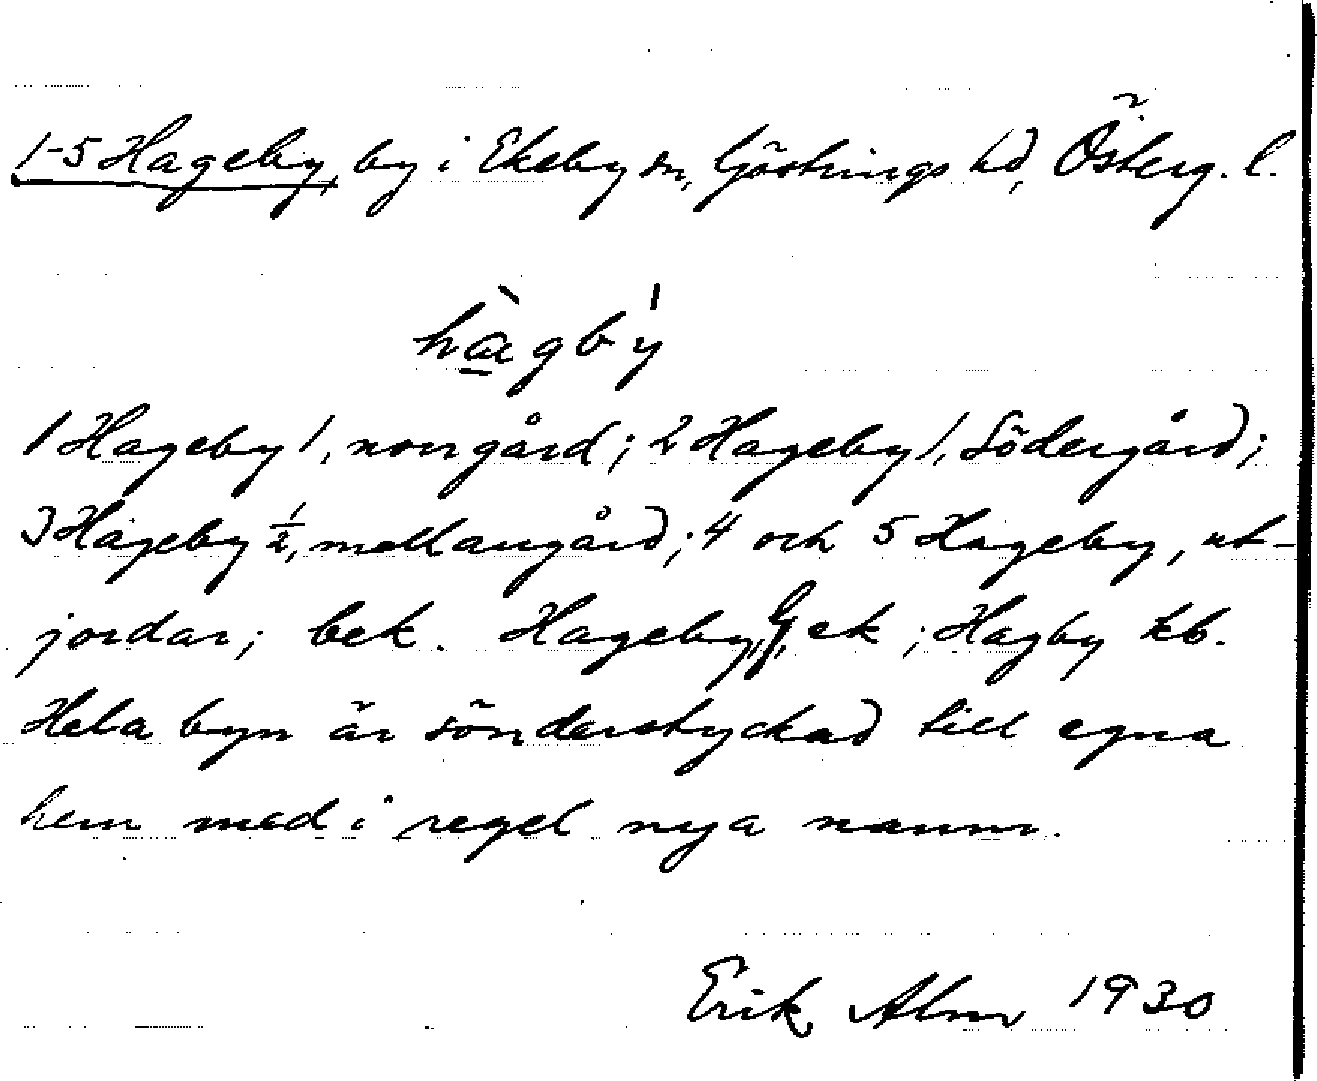 1-5 Hageby, by i Ekeby sn, Göstrings hd, Österg. l.
hàgbý
1 Hageby 1, norrgård; 2 Hageby 1, Södergård;
3 Hageby ½, mellangård; 4 och 5 Hageby, ut-
jordar; bek. Hageby, G, ek; Hagby kb.
Hela byn är sönderstyckad till egna
hem med i regel nya namn.
Erik Alm 1930